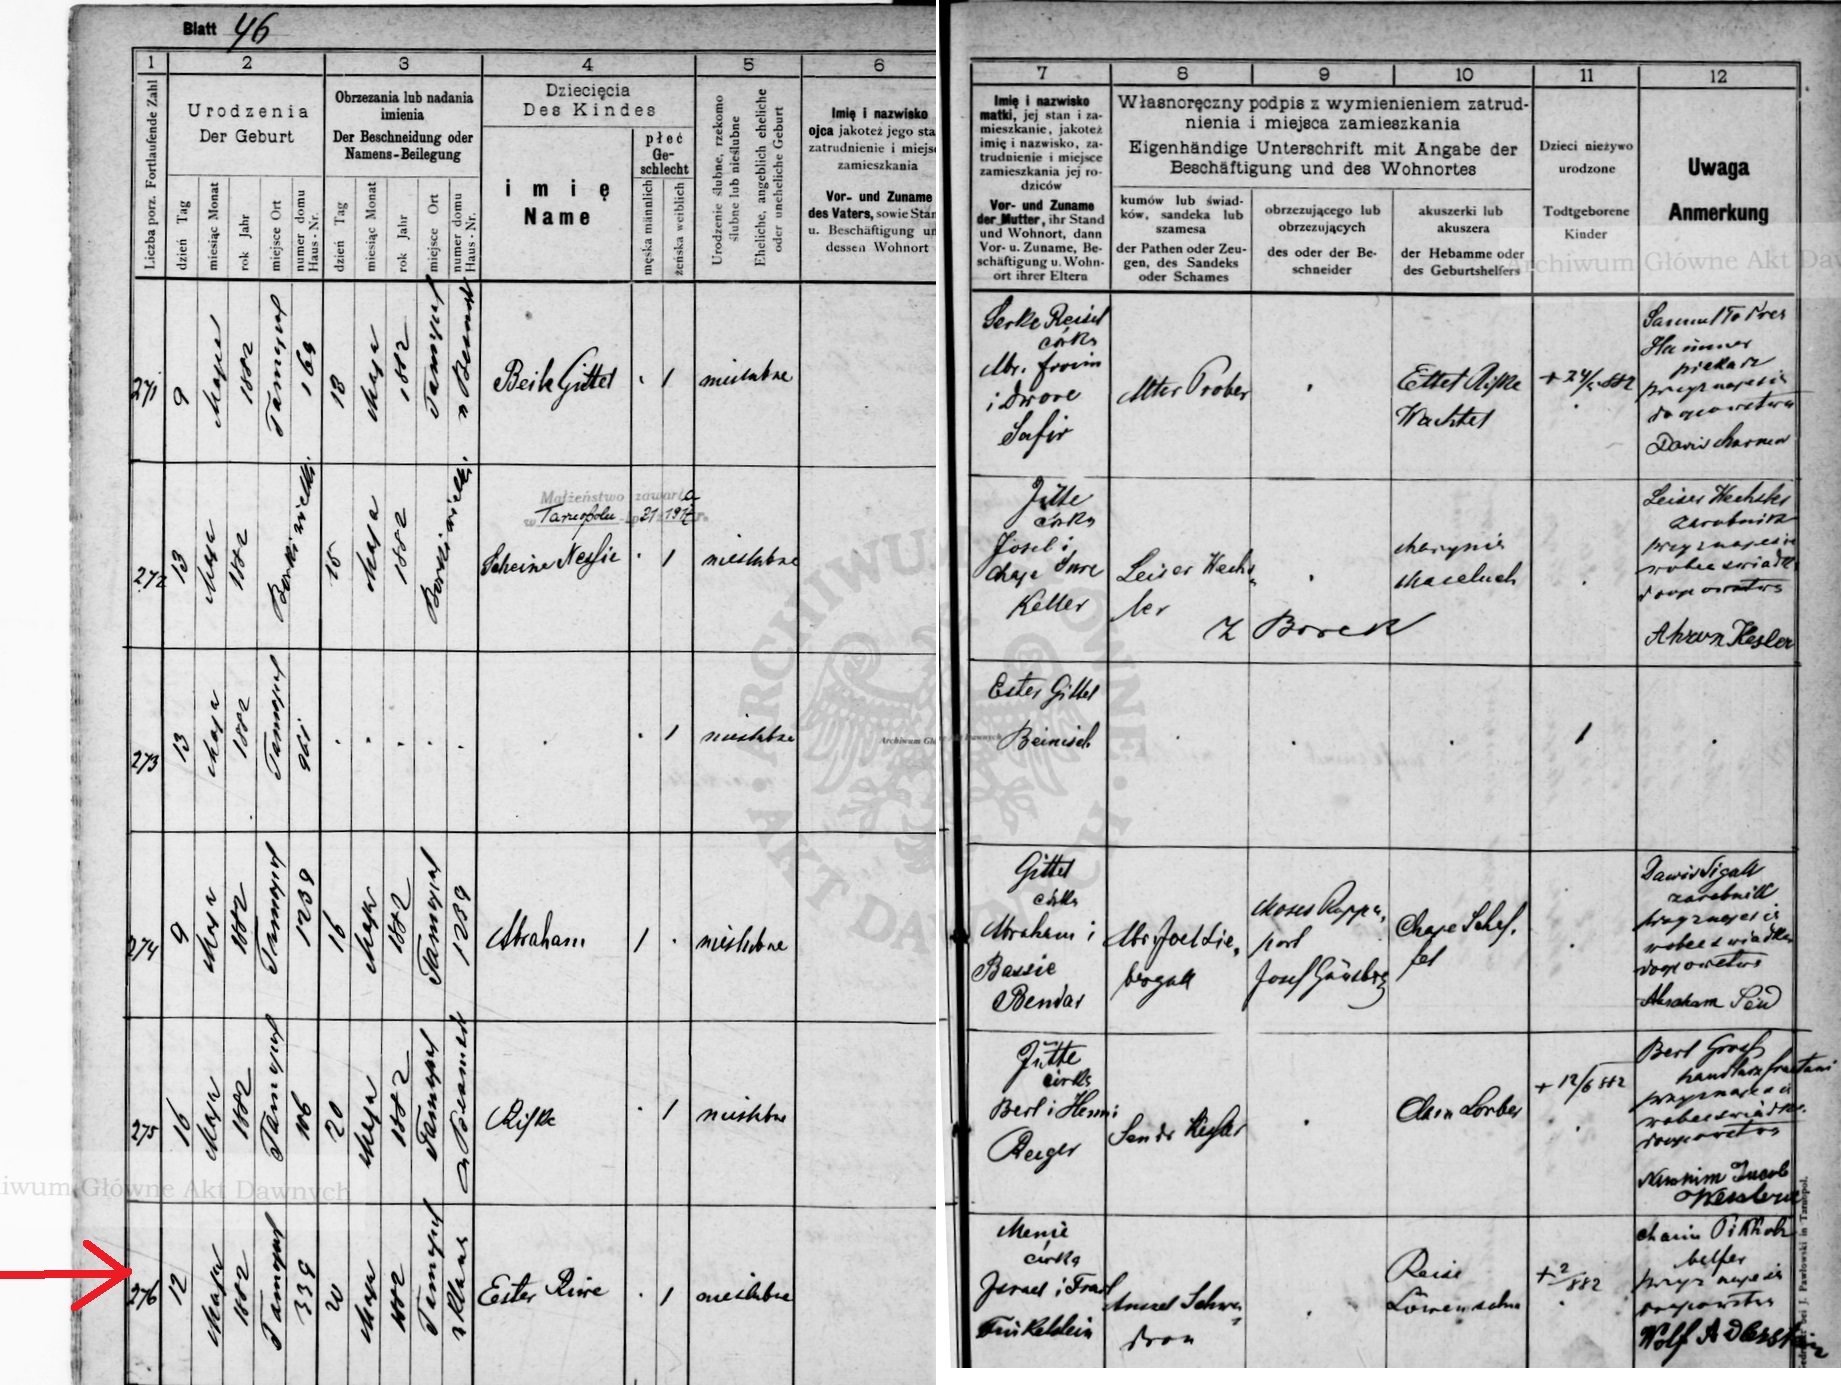 Blatt 46
1
2
3
4
5
6
7
8
9
10
11
12
Liczba porz. Fortlaufende Zahl
Urodzenia
Der Geburt
dzień Tag
miesiąc Monat
rok Jahr
miejsce Ort
numer domu
Haus-Nr.
Obrzezania lub nadania
imienia
Der Beschneidung oder
Namens-Beilegung
dzień Tag
miesiąc Monat
rok Jahr
miejsce Ort
numer domu
Haus-Nr.
Dziecięcia
Des Kindes
imię
Name
płeć
Ge-
schlecht
męska männlich
żeńska weiblich
Urodzenie ślubne, rzekomo
ślubne lub nieślubne
Eheliche, angeblich eheliche
oder uneheliche Geburt
Imię i nazwisko
ojca jakoteż jego sta
zatrudnienie i miejs
zamieszkania
Vor- und Zuname
des Vaters, sowie Stan
u. Beschäftigung un
dessen Wohnort
Imię i nazwisko
matki, jej stan i za-
mieszkanie, jakoteż
imię i nazwisko, za-
trudnienie i miejsce
zamieszkania jej ro-
dziców
Vor- und Zuname
der Mutter, ihr Stand
und Wohnort, dann
Vor- u. Zuname, Be-
schäftigung u. Wohn-
ort ihrer Eltern
Własnoręczny podpis z wymienieniem zatrud-
nienia i miejsca zamieszkania
Eigenhändige Unterschrift mit Angabe der
Beschäftigung und des Wohnortes
kumów lub świad-
ków, sandeka lub
szamesa
der Pathen oder Zeu-
gen, des Sandeks
oder Schames
obrzezującego lub
obrzezujących
des oder der Be-
schneider
akuszerki lub
akuszera
der Hebamme oder
des Geburtshelfers
Dzieci nieżywo
urodzone
Todtgeborene
Kinder
Uwaga
Anmerkung
271
9
Maja
1882
Tarnopol
169
18
Maja
1882
Tarnopol
Beile Gittel
1
nieślubne
Serke Reisel
córka
Abr. Froim
i Dwore
Safir
Alter Prober
Ettel Rifke
Wachtel
Hammer
piekarz
przyznaje się
do ojcowstwa
272
13
Maja
1882
Borki wielki
18
Maja
1882
Borki wielki
Małżeństwo zawarto
w Tarnopolu
Scheine Nessie
1
nieślubne
Jütte
córka
Josel i
Chaje Sure
Keller
Leiser Hechs-
ler
Z Borek
Marynia
Leiser Hechsler
zarobnik
przyznaje się
wobec świadk
do ojcowstwa
Ahron Kesler
273
13
Maja
1882
Tarnopol
961
1
nieślubne
Ester Gittel
Beinisch
1
274
9
Maja
1882
Tarnopol
1239
16
Maja
1882
Tarnopol
1239
Abraham
1
nieślubne
Gittel
córka
Abraham i
Bassie
Bendar
Abr. Joel Lie-
bergall
Moses Rappa-
port
Josef Günsberg
Chaje Schef-
fel
Dawid Sigall
zarobnik
przyznaje się
wobec świadka
do ojcowstwa
Abraham
275
16
Maja
1882
Tarnopol
106
20
Maja
1882
Tarnopol
Rifke
1
nieślubne
Jütte
córka
Berl i Henni
Reiger
Sender Kesler
Chaim Lorber
+ 12/6 882
Berl Gross
przyznaje się
wobec świadków
do ojcowstwa
Jacob
276
12
Maja
1882
Tarnopol
339
20
Maja
1882
Tarnopol
Ester Riwe
1
nieślubne
Menie
córka
Israel i
Finkelstein
Anszel Schwa-
dron
Reise
+
882
Chaim Pikholz
belfer
przyznaje się
do ojcowstwa
Wolf Adlerstein
Archiwum Główne Akt Dawnych